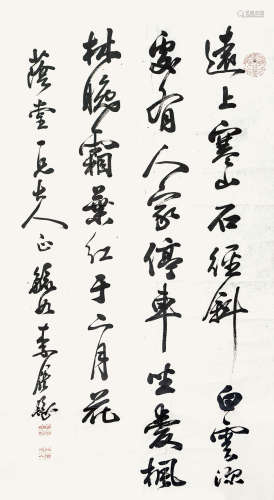 遠上寒山石徑斜白雲深
處有人家停車坐愛楓
林晚霜葉紅于二月花
蔭堂仁兄大人正毓如李